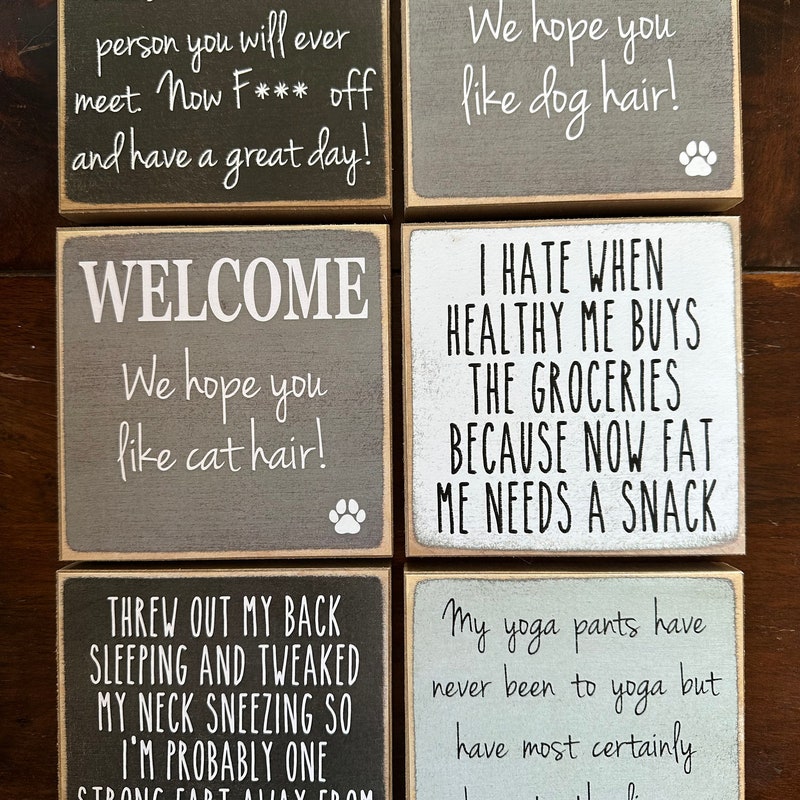 person you will ever
meet. Now F*** off
and have a great day!
We hope you
like dog hair!
WELCOME
We hope you
like cat hair!
I HATE WHEN
HEALTHY ME BUYS
THE GROCERIES
BECAUSE NOW FAT
ME NEEDS A SNACK
THREW OUT MY BACK
SLEEPING AND TWEAKED
MY NECK SNEEZING SO
I'M PROBABLY ONE
STRONG FART AWAY FROM
My yoga pants have
never been to yoga but
have most certainly